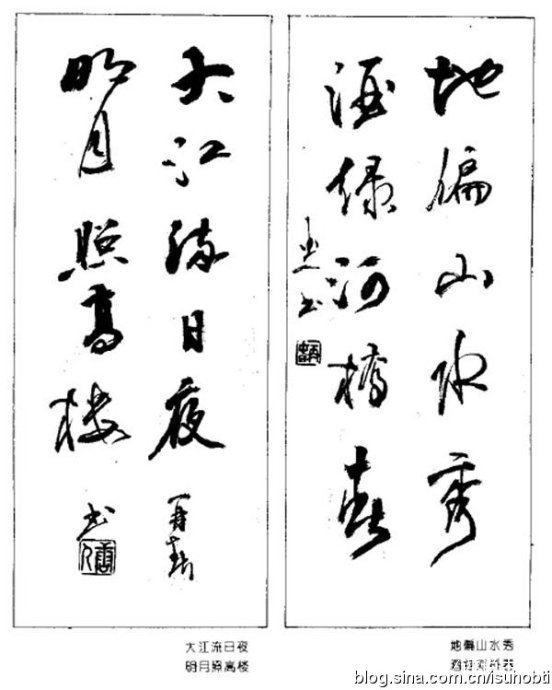 地偏山水秀
酒绿河橋春
书
大江流日夜
明月照高楼
书
大江流日夜
明月照高楼
地偏山水秀
blog.sina.com.cn/isunobti